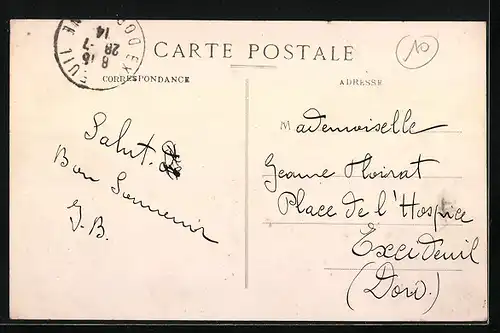 CARTE POSTALE
CORRESPONDANCE
ADRESSE
10
8 15
28 -7
14
Salut.
Bon Souvenir
J.B.
Mademoiselle
Jeanne Floirat
Place de l'Hospice
Excideuil
(Dord.)